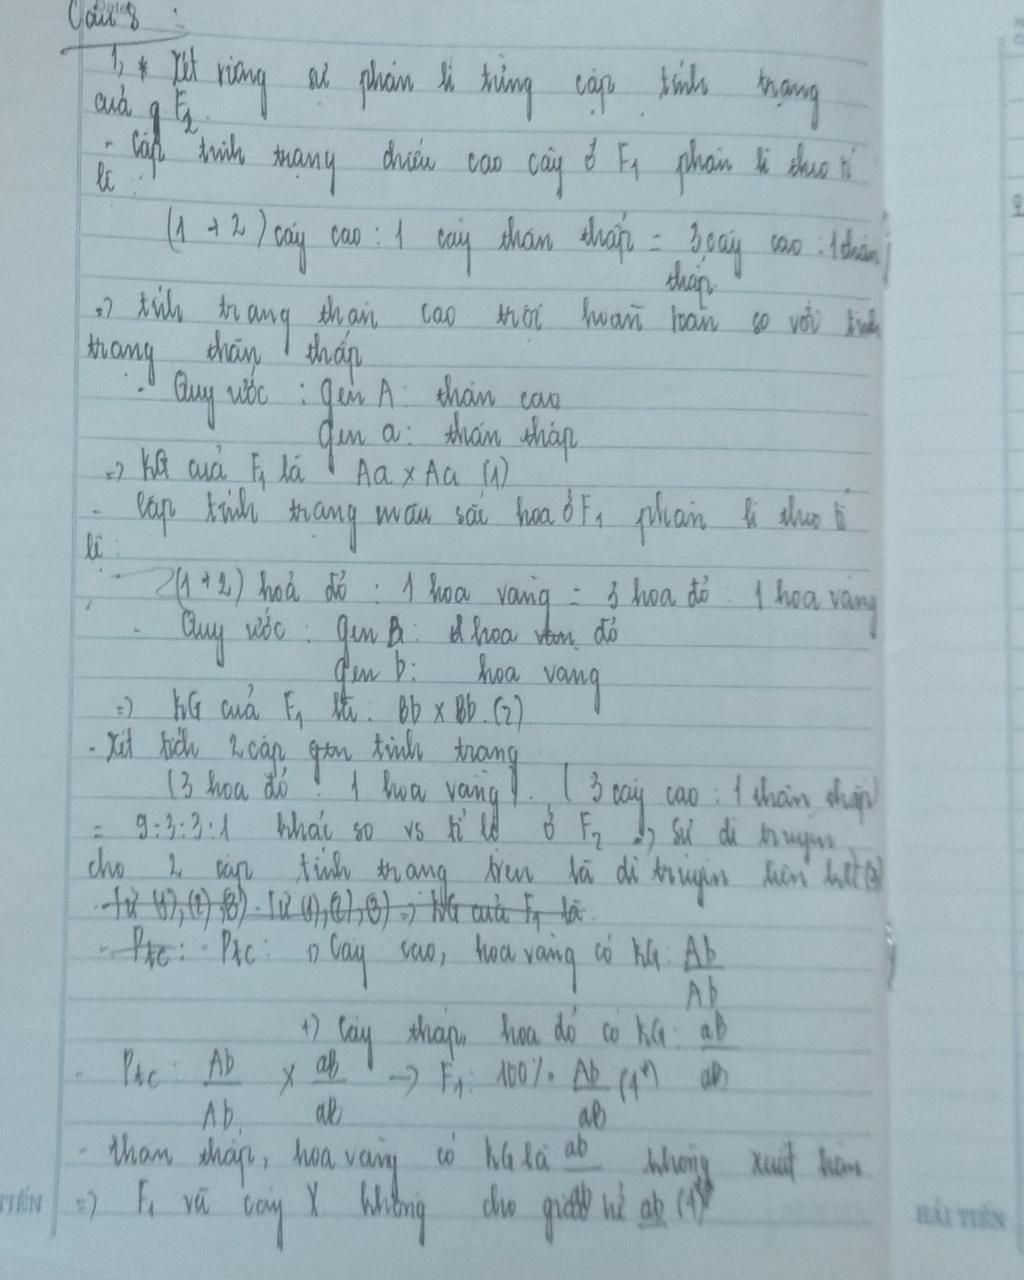 Câu 8 :
1, * Xét riêng sự phân li từng cặp tính trạng
của F2
- Cặp tính trạng chiều cao cây ở F1 phân li theo tỉ
lệ :
(1 + 2) cây cao : 1 cây thân thấp = 3 cây cao : 1 thân
thấp
=> tính trạng thân cao trội hoàn toàn so với tính
trạng thân thấp
- Quy ước : gen A : thân cao
gen a : thân thấp
=> KG của F1 là Aa x Aa (1)
- Cặp tính trạng màu sắc hoa ở F1 phân li theo tỉ
lệ :
(1 + 2) hoa đỏ : 1 hoa vàng = 3 hoa đỏ : 1 hoa vàng
- Quy ước : gen B : hoa đỏ
gen b : hoa vàng
=> KG của F1 là : Bb x Bb (2)
- Xét tích 2 cặp tính trạng
(3 hoa đỏ : 1 hoa vàng) . (3 cây cao : 1 thân thấp)
= 9:3:3:1 khác so vs tỉ lệ ở F2 => Sự di truyền
cho 2 cặp tính trạng trên là di truyền liên kết (3)
Từ (1), (2), (3) . Từ (1), (2), (3) => KG của F1 là
- Ptc : - Ptc : +) Cây cao, hoa vàng có KG : Ab
Ab
+) Cây thấp, hoa đỏ có KG : aB
aB
- Ptc : Ab x aB -> F1 : 100% Ab (1*)
Ab aB aB
- thân thấp, hoa vàng có KG là ab không xuất hiện
=> F1 và cây X không cho giao tử ab (1*)
TIẾN
HẢI TIẾN